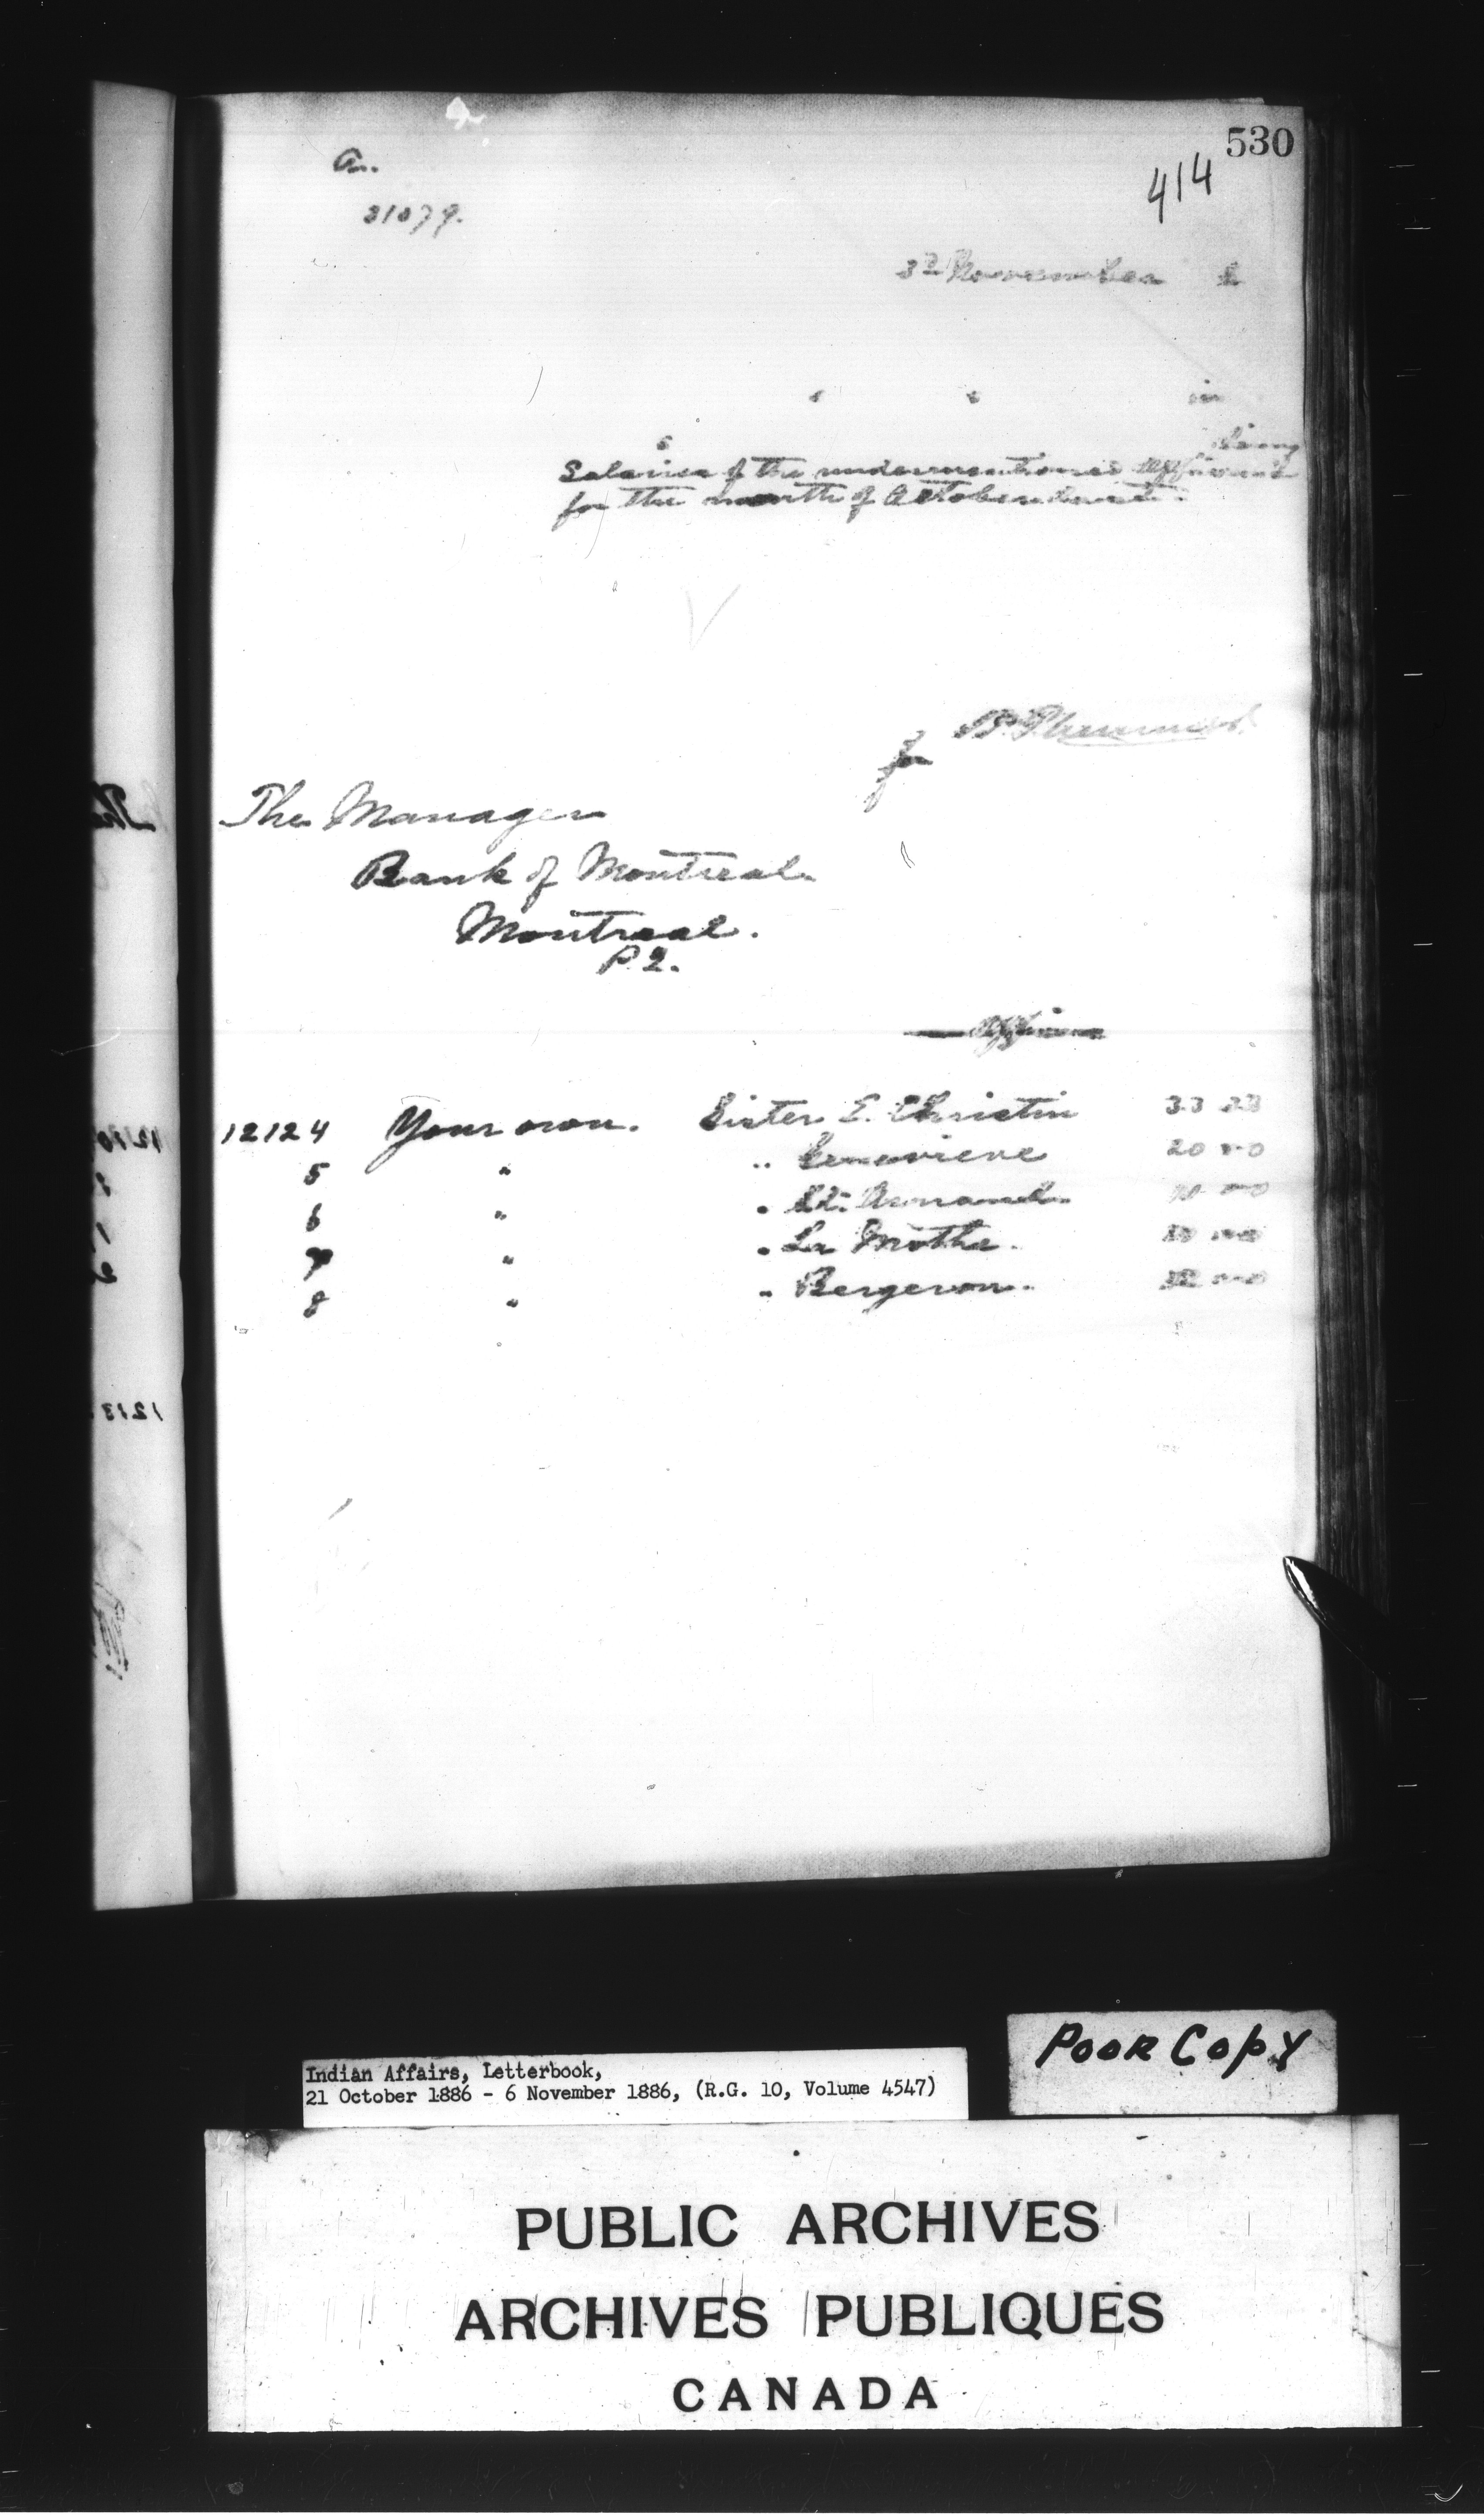 530
414
a.
31079.
3rd November 6
in
being
Salaries of the undermentioned
for the month of October last.
for
The Manager
Bank of Montreal
Montreal.
P.2.
12124 Your own. Sister E. Christin 33 33
5 " " Genevieve 20 00
6 " " St. Armand
7 " " La Mothe.
8 " " Bergeron.
Poor Copy
Indian Affairs, Letterbook,
21 October 1886 - 6 November 1886, (R.G. 10, Volume 4547)
PUBLIC ARCHIVES
ARCHIVES PUBLIQUES
CANADA